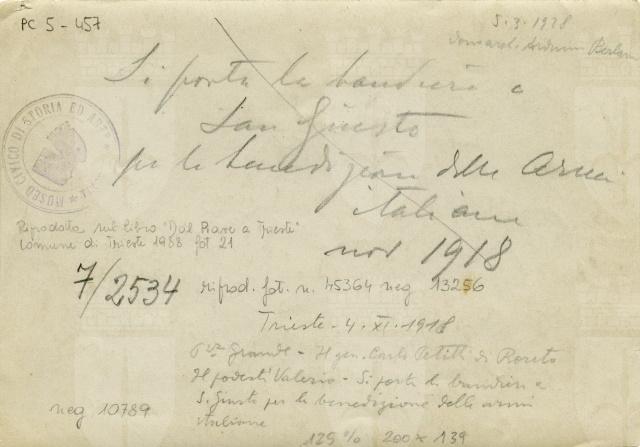 PC 5-457
5.3.1928
Si porta la bandiera a
San Giusto
per la benedizione delle armi
italiane
nov 1918
MUSEO CIVICO DI STORIA ED ARTE
Riprodotta sul libro "Dal Piave a Trieste"
Comune di Trieste 1988 fot 21
7/2534 riprod. fot. n. 45364 neg 13256
Trieste - 4.XI.1918
Grande - Il gen. Carlo Petitti di Roreto
Il podestà Valerio - Si porta la bandiera a
S. Giusto per la benedizione delle armi
italiane
neg 10789
129% 200 x 139